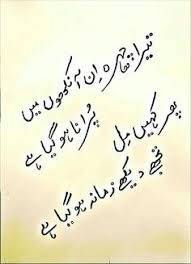 تیرا چہرہ اِن آنکھوں میں
پُرانا ہو گیا ہے
پھر کہیں مِل
تجھے دیکھے زمانہ ہو گیا ہے